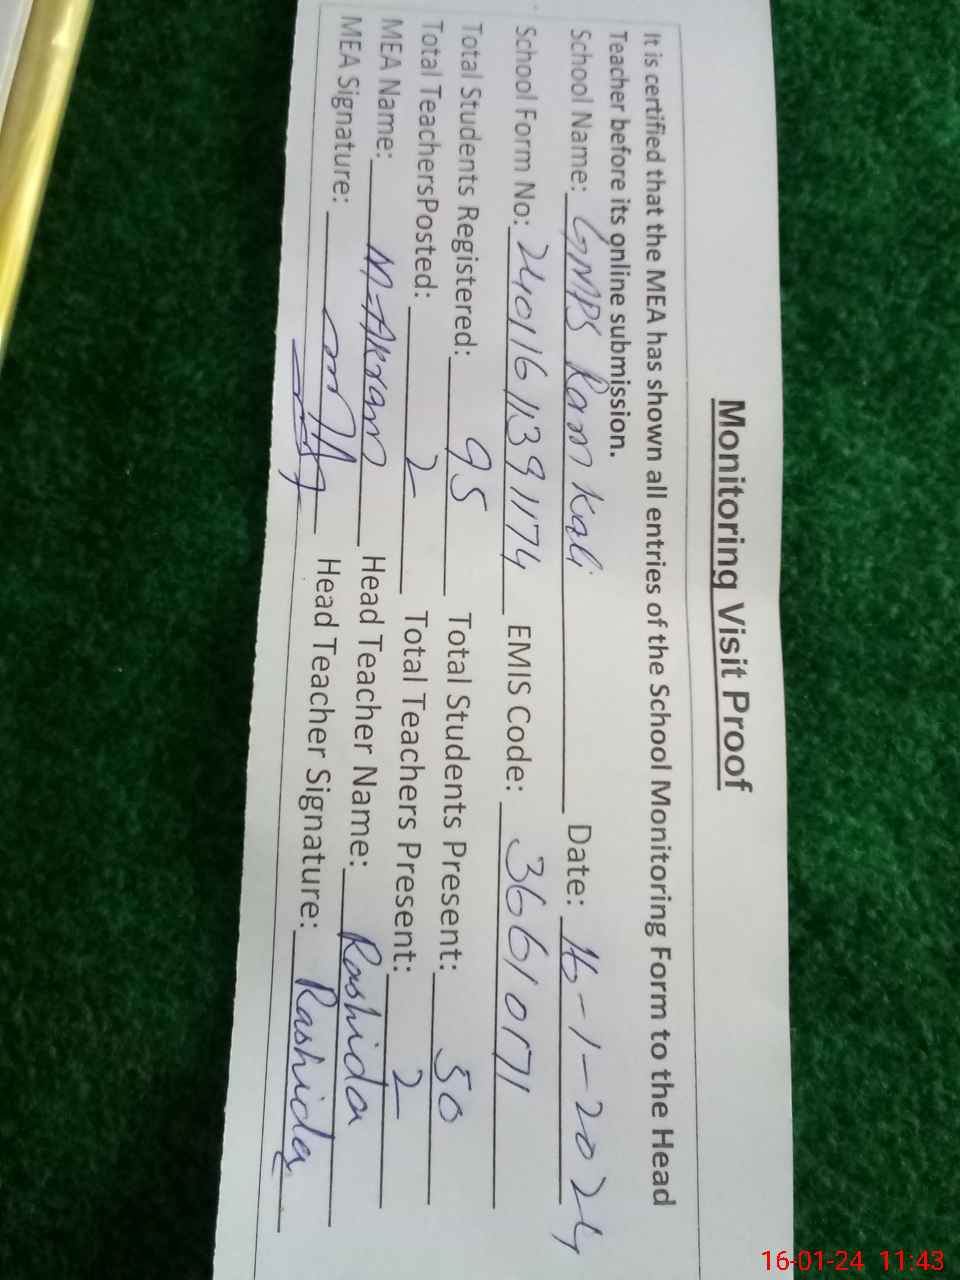 Monitoring Visit Proof
It is certified that the MEA has shown all entries of the School Monitoring Form to the Head
Teacher before its online submission.
School Name: GMPS Ram Kali Date: 16-1-2024
School Form No: 24011611391174 EMIS Code: 36610171
Total Students Registered: 95 Total Students Present: 50
Total TeachersPosted: 2 Total Teachers Present: 2
MEA Name: M-Akram Head Teacher Name: Rashida
MEA Signature: Head Teacher Signature: Rashida
16-01-24 11:43